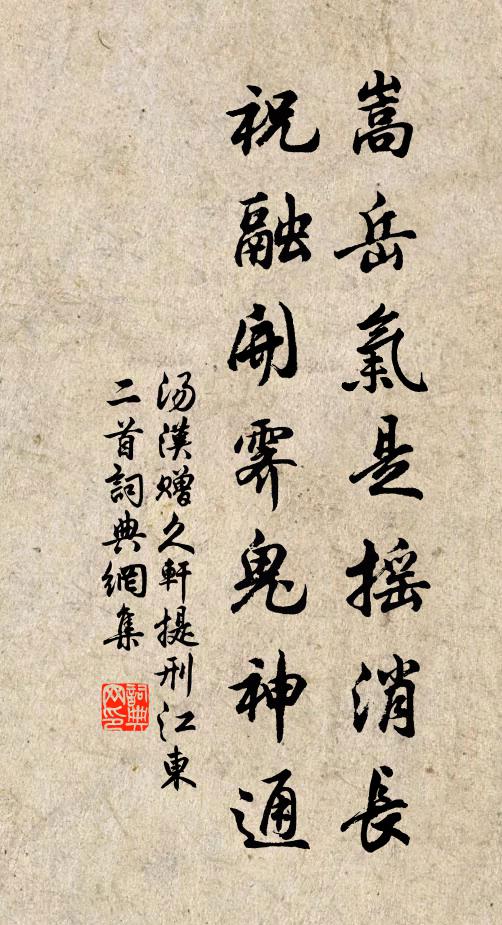 嵩岳氣是摇消長
祝融開霽鬼神通
汤漢赠久軒提刑江東
二首詞典網集
詞典网印